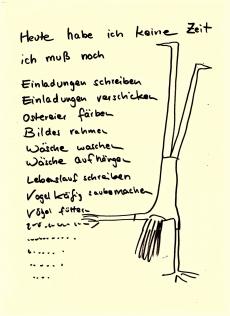 Heute habe ich keine Zeit
ich muß noch
Einladungen schreiben
Einladungen verschicken
Ostereier färben
Bilder rahmen
Wäsche waschen
Wäsche aufhängen
Lebenslauf schreiben
Vogelkäfig saubermachen
Vögel füttern